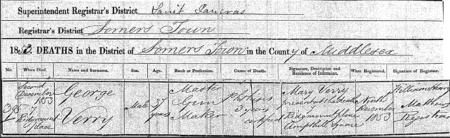 Superintendent Registrar's District Saint Pancras
Registrar's District Somers Town
185 DEATHS in the District of Somers Town in the County of Middlesex
No. When Died. Name and Surname. Sex. Age. Rank or Profession. Cause of Death. Signature, Description and Residence of Informant. When Registered. Signature of Registrar.
Second December 1853 George Verry Male 37 years Master Gun Maker Phthisis 3 years Certified Mary Verry present at the death Ridgmount place Ampthill Square Ninth December 1853 William Mathews Registrar